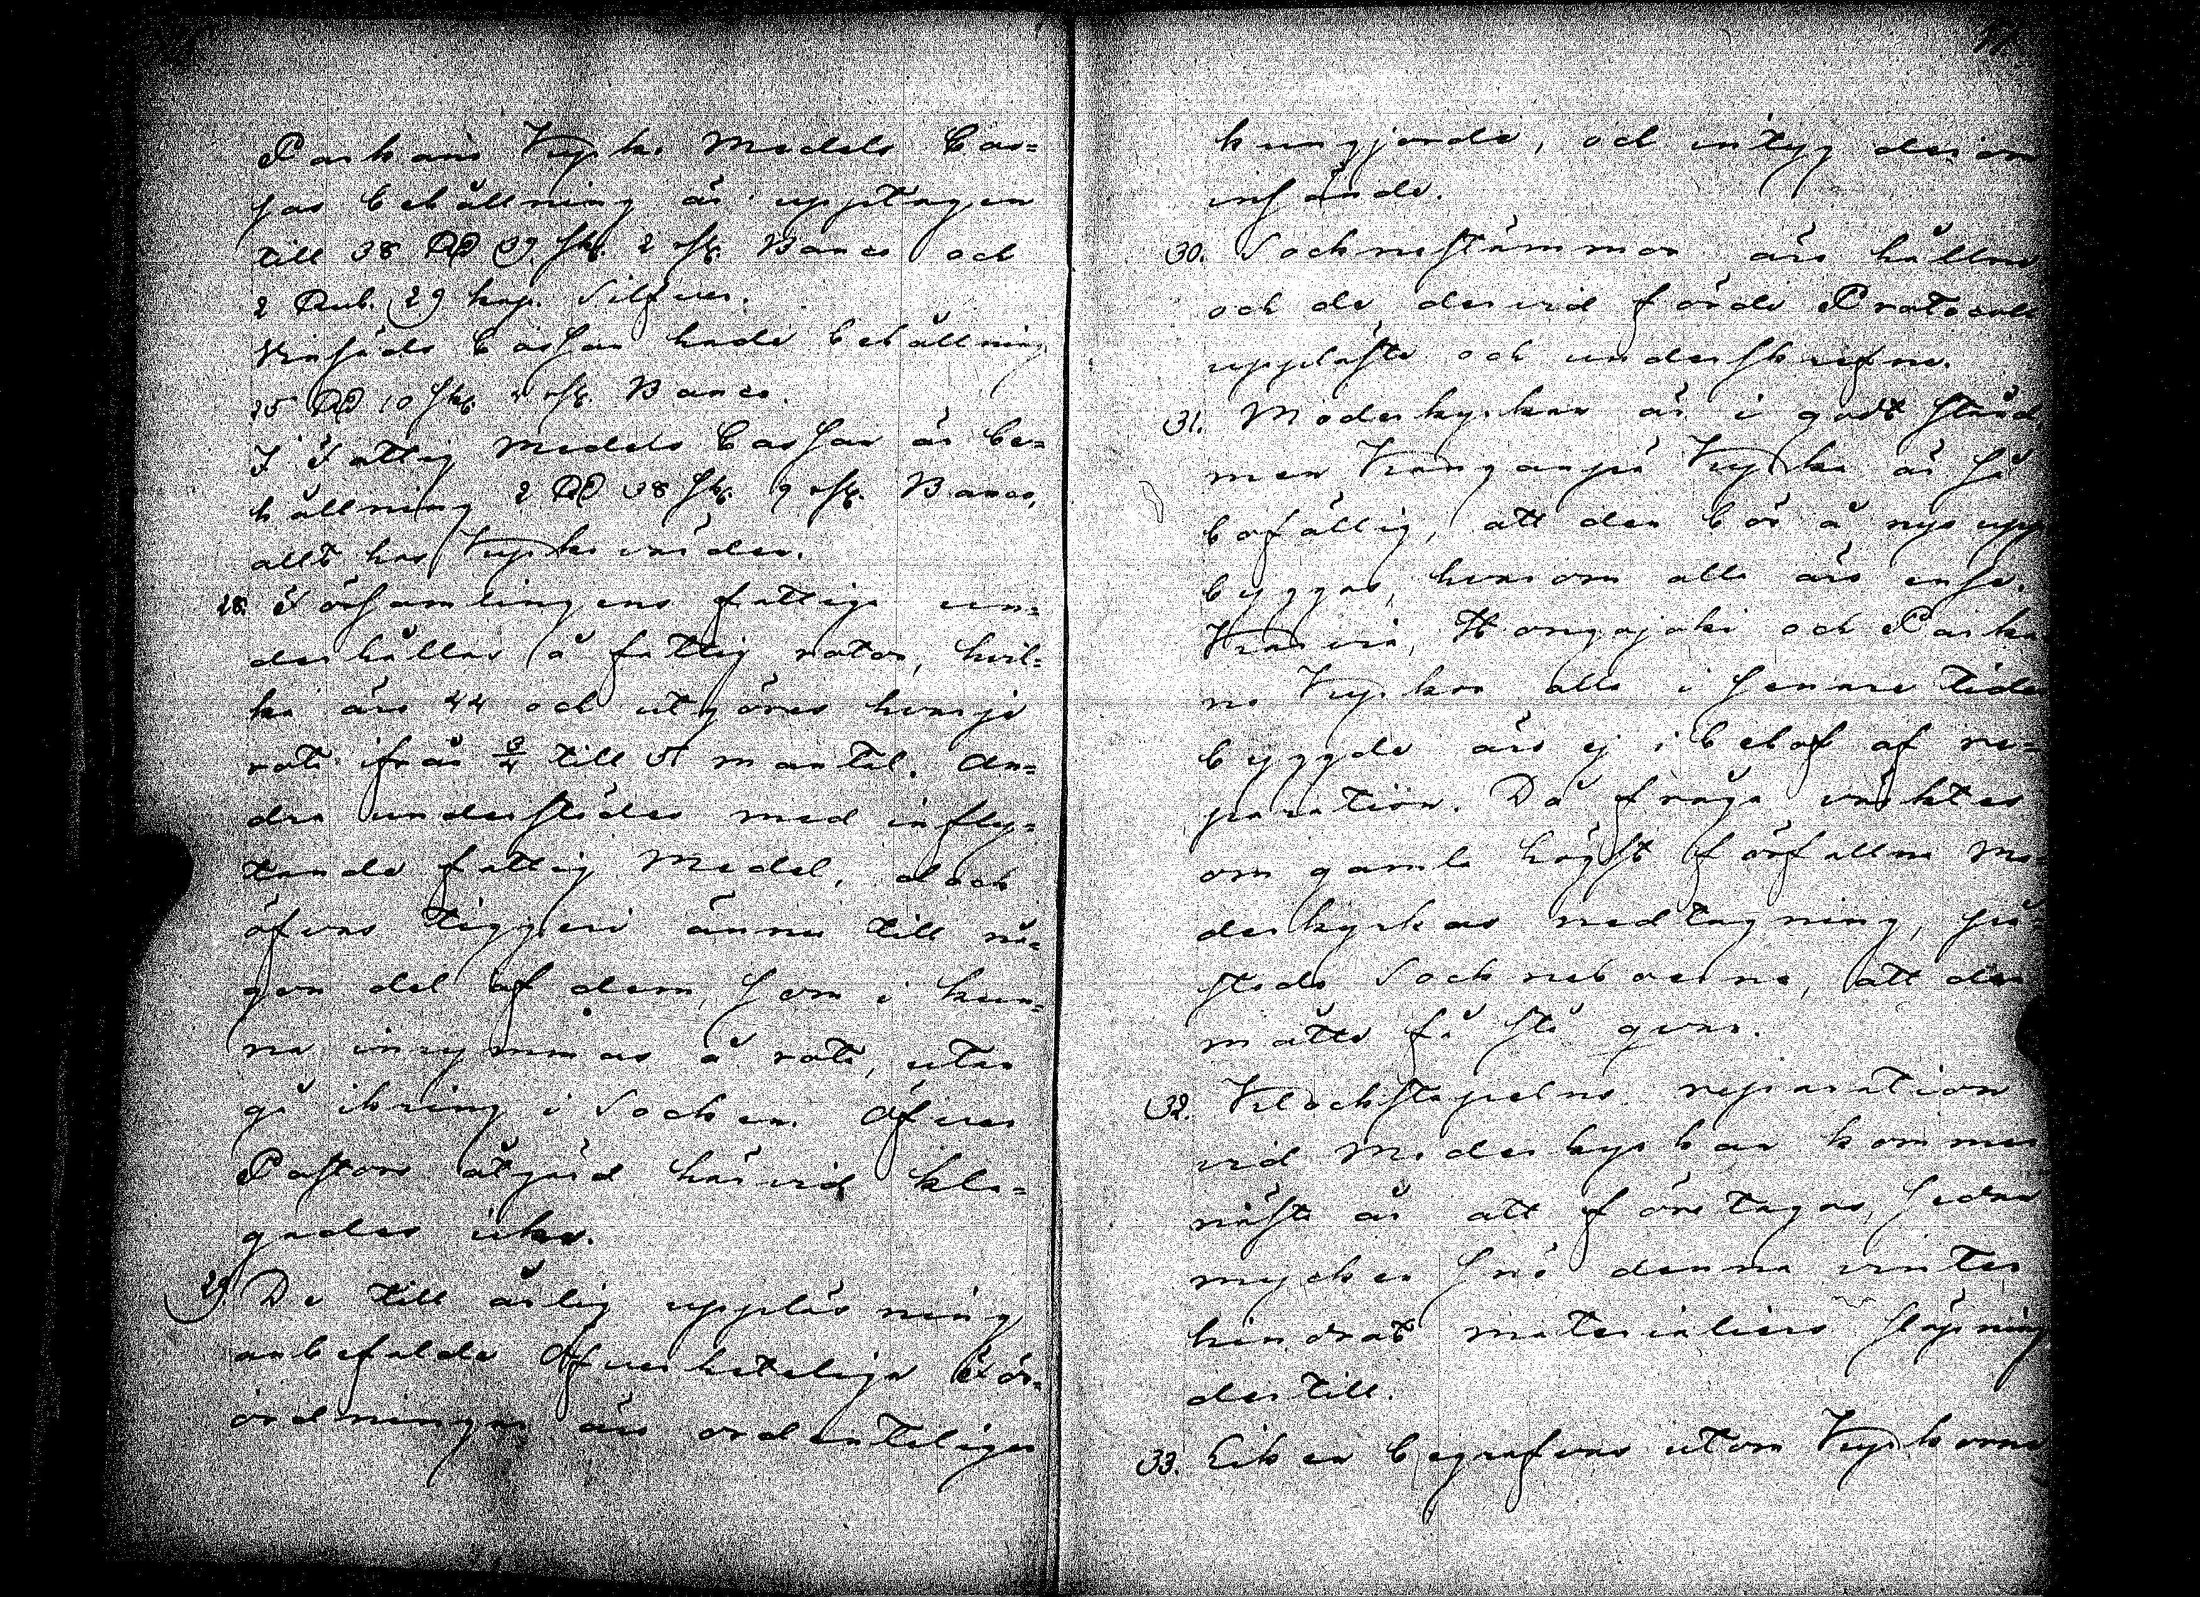 Parkans Kyrko Medels Cas=
sas behållning är upptagen
till 38 RD 39 sk. 2 rst. Banco och
2 Rub. 29 kop. Silfver.
Kinsäds Cassan hade behållning
25 RD 10 sk. 4 rst. Banco.
I Fattig Medels Cassan är be=
hållning 2 RD 38 sk. 9 rst. Banco,
allt hos Kyrko värden.
28. Församlingens fattige un=
derhållas å fattig rotar, hvil=
ka äro 44 och utgöres hvarje
rote ifrån 3/4 till 5 mantal. An=
dra understödes med infly=
tande fattig Medel, dock
öfvas tiggeri ännu till nå=
gon del af dem, som i kun=
na inrymmas å rote, utan
gå ikring i Socken. Öfver
Pastors åtgärd härvid kla=
gades icke.
29. De till årlig uppläsning
anbefalde Öfverhetelige För=
ordningar äro ordenteligen
kungjorde, och intyg derom
insände.
30. Socknestämmor äro hållne
och de dervid förde Protocoll
uppläste och underskrefne.
31. Moderkyrkan är i godt stånd,
men Kyrka är så
bofällig, att den bör å nyo upp
byggas, hvarom alle äro ense.
Karvia, Hongojoki och Parka
no Kyrkor alla i senare tider
byggde äro ej i behof af re=
paration. Då fråga väcktes
om gamla högst förfallna Mo=
derkyrkas nedtagning, på=
stodo Sockneboerne, att den
måtte få stå qvar.
32. Klockstapelns reparation
vid Moderkyrkan kommer
nästa år att företagas, sedan
mycken snö denna vinter
hindrat materialiers släpning
dertill.
33. Liken begrafvas utom Kyrkorne